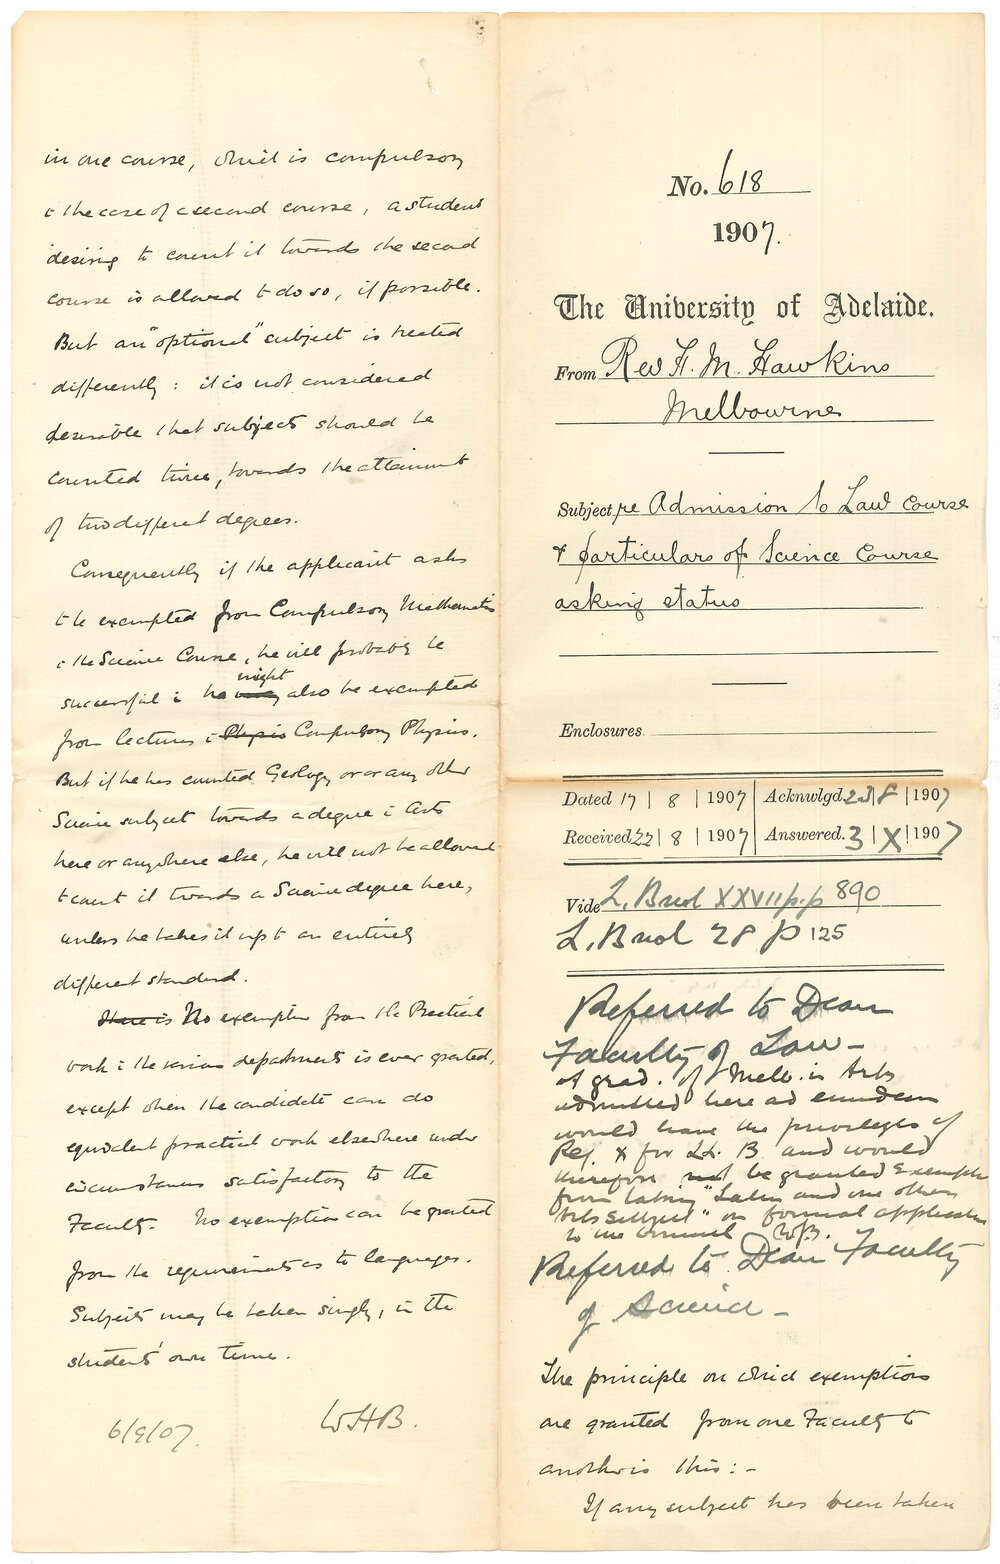 No. 618
1907.
The University of Adelaide.
From Rev F. M. Hawkins
Melbourne
Subject, re Admission to Law Course
& particulars of Science Course
asking status
Enclosures
Dated 17 | 8 | 1907 Acknwlgd. 23 8 | 1907
Received 22 | 8 | 1907 Answered. 3 | X | 1907
Vide L. Book XXVII p.p 890
L. Book 28 p 125
Referred to Dean
Faculty of Law -
A grad. of Melb. in Arts
admitted here ad eundem
would have the privileges of
Reg. X for LL. B. and would
therefore be granted exemption
from taking "Latin and one other
Arts Subject" on formal application
to the Council
Referred to Dean Faculty
of Science -
The principle on which exemptions
are granted from one Faculty to
another is this: -
If any subject has been taken
in one course, which is compulsory
in the case of a second course, a student
desiring to count it towards the second
course is allowed to do so, if possible.
But an "optional" subject is treated
differently: it is not considered
desirable that subjects should be
counted twice, towards the attainment
of two different degrees.
Consequently if the applicant asks
to be exempted from Compulsory Mathematics
in the Science Course, he will probably be
successful: he might also be exempted
from lectures in Physics Compulsory Physics.
But if he has counted Geology or or any other
Science subject towards a degree in Arts
here or anywhere else, he will not be allowed
to count it towards a Science degree here,
unless he takes it up to an entirely
different standard.
There is No exemption from the Practical
work in the various departments is ever granted,
except when the candidate can do
equivalent practical work elsewhere under
circumstances satisfactory to the
Faculty. No exemption can be granted
from the requirements as to languages.
Subjects may be taken singly, in the
students' own time.
6/9/07. WHB.